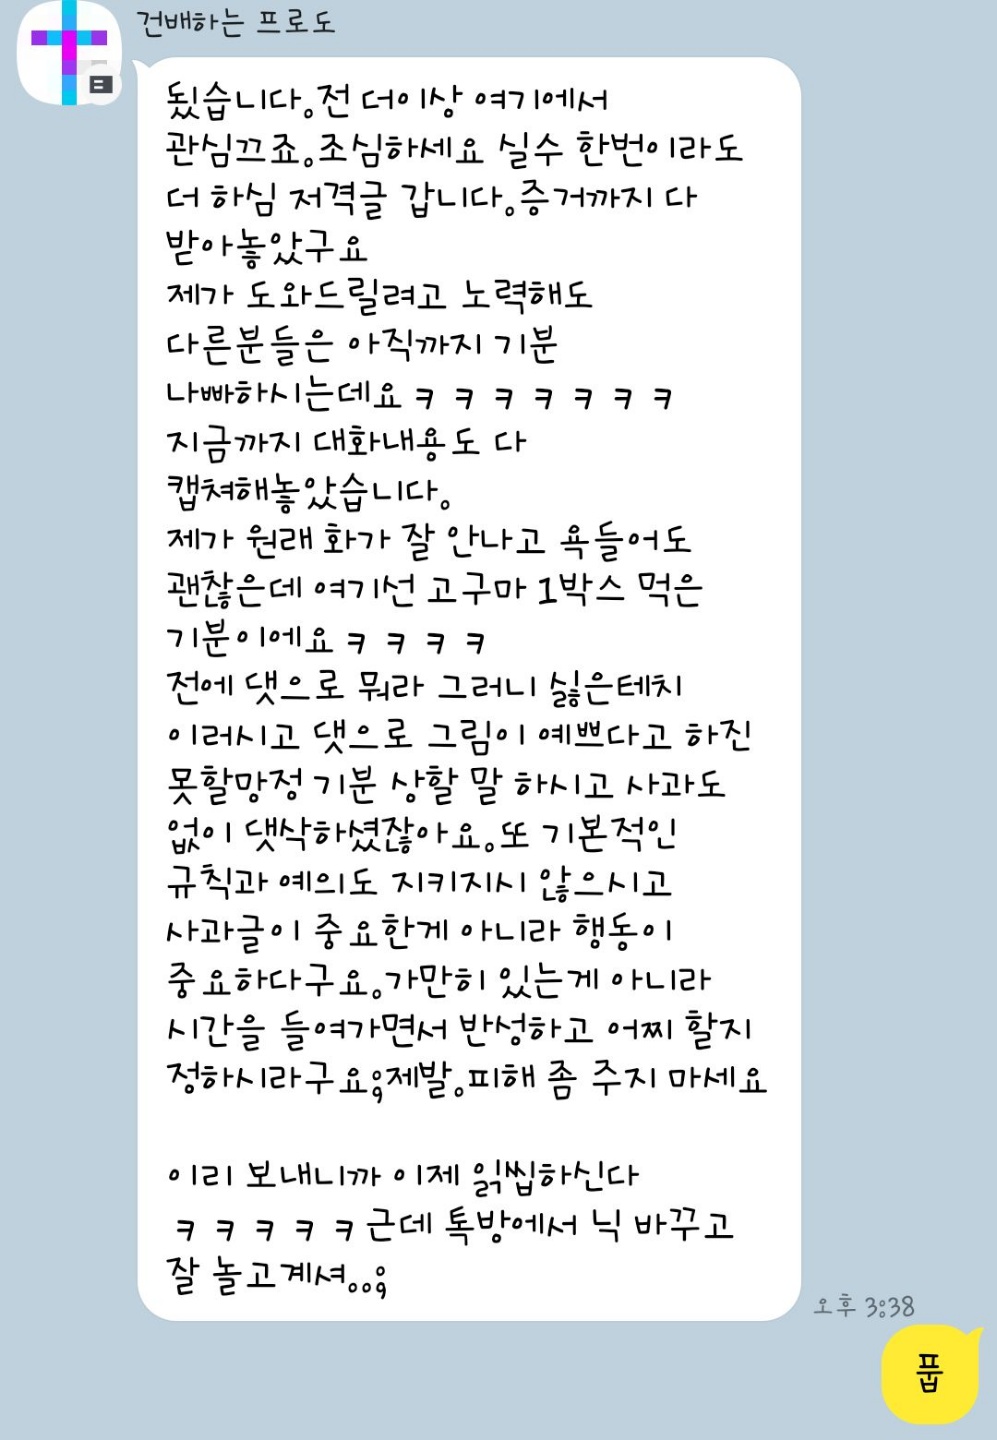 건배하는 프로도
됬습니다.전 더이상 여기에서
관심끄죠.조심하세요 실수 한번이라도
더 하심 저격글 갑니다.증거까지 다
받아놓았구요
제가 도와드릴려고 노력해도
다른분들은 아직까지 기분
나빠하시는데요ㅋㅋㅋㅋㅋㅋㅋ
지금까지 대화내용도 다
캡쳐해놓았습니다.
제가 원래 화가 잘 안나고 욕들어도
괜찮은데 여기선 고구마 1박스 먹은
기분이에요ㅋㅋㅋㅋ
전에 댓으로 뭐라 그러니 싫은테치
이러시고 댓으로 그림이 예쁘다고 하진
못할망정 기분 상할 말 하시고 사과도
없이 댓삭하셨잖아요.또 기본적인
규칙과 예의도 지키지시 않으시고
사과글이 중요한게 아니라 행동이
중요하다구요.가만히 있는게 아니라
시간을 들여가면서 반성하고 어찌 할지
정하시라구요;제발.피해 좀 주지 마세요
이리 보내니까 이제 읽씹하신다
ㅋㅋㅋㅋㅋ근데 톡방에서 닉 바꾸고
잘 놀고계셔..;
오후 3:38
풉